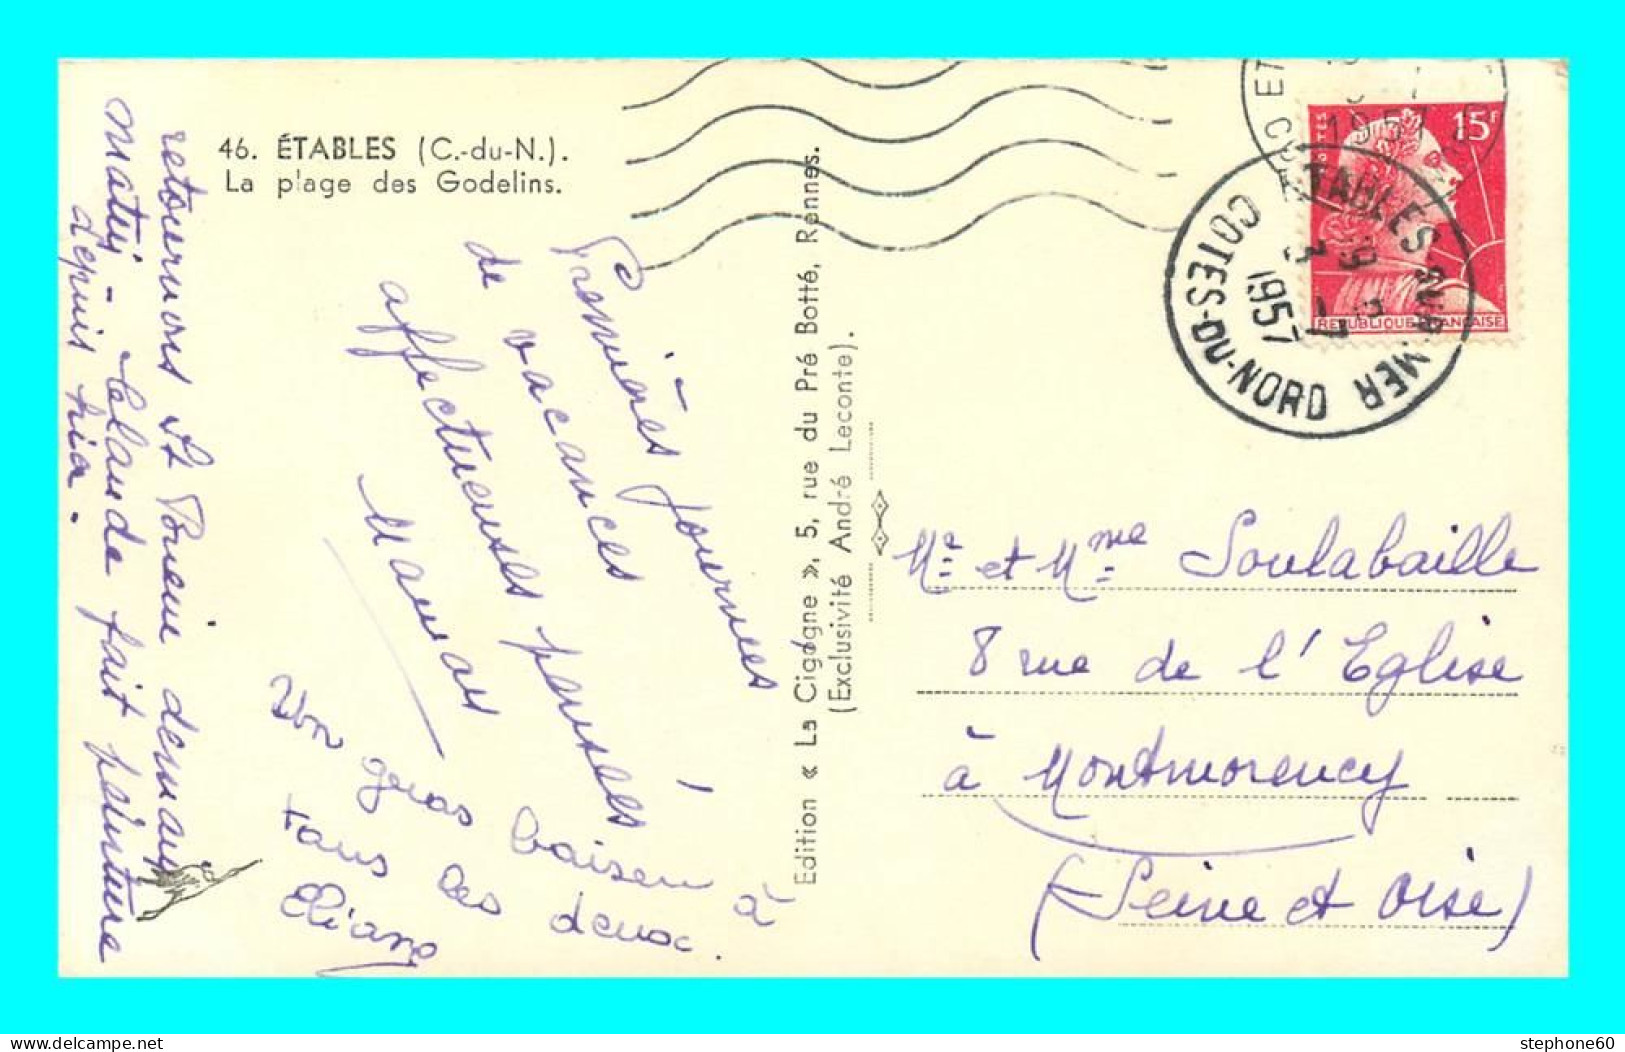 46. ÉTABLES (C.-du-N.).
La plage des Godelins.
Premières journées
de vacances
affectueuses pensées
Maman
Un gros baiser à
tous les deux.
Eliane
retournons St demain
matin - Claude fait peinture
depuis hier.
Edition « La Cigogne », 5, rue du Pré Botté, Rennes.
(Exclusivité André Leconte).
POSTES
15F
REPUBLIQUE FRANÇAISE
1957
ETABLES SUR MER
19
3 - 7
1957
COTES-DU-NORD
Mr et Mme Soulabaille
8 rue de l'Eglise
à Montmorency
(Seine et Oise)
stephone60